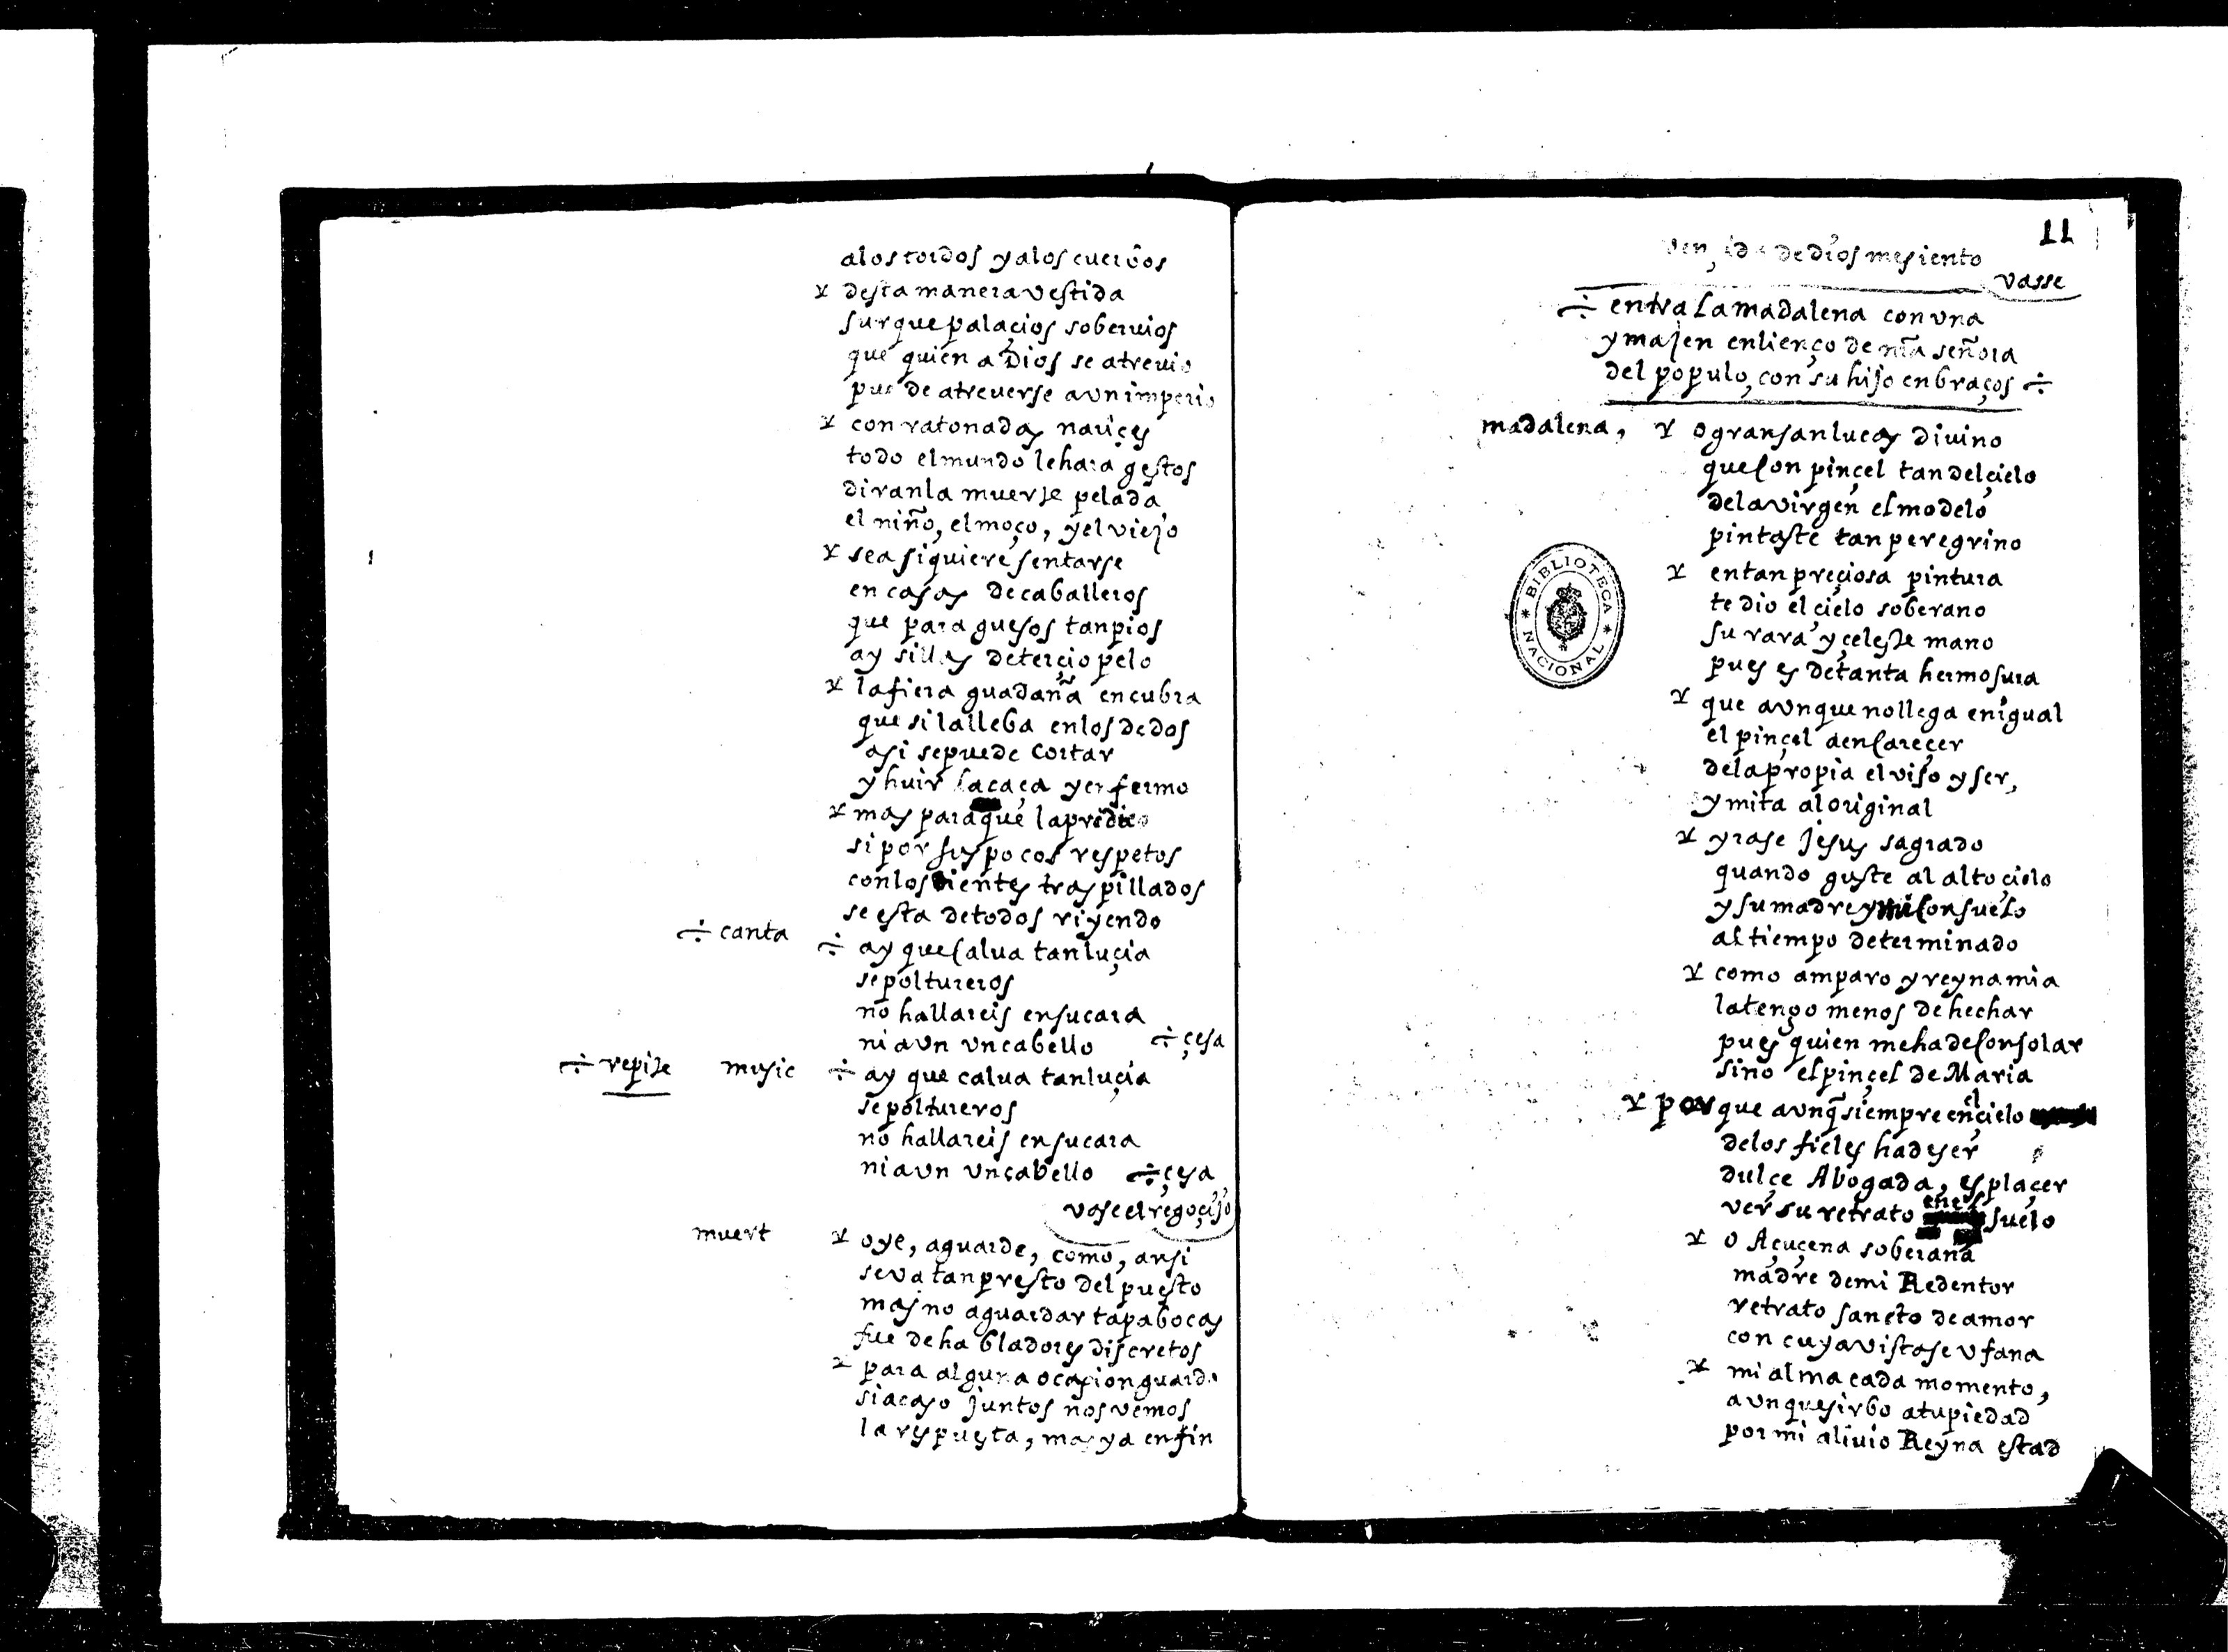 a los tordos y a los cuervos
desta manera vestida
surque palaçios sobervios
que quien a Dios se atrevio
puede atreverse a vn imperio
con ratonadas nariçes
todo el mundo le hara gestos
diran la muerte pelada
el niño, el moço, y el viejo
sea si quiere sentarse
en casas de caballeros
que para guesos tan pios
ay sillas de terçio pelo
la fiera guadaña encubra
que si la lleba en los dedos
asi se puede cortar
y huir la caça y enfermo
mas para que la predico
si por sus pocos respetos
con los dientes traspillados
se esta de todos riyendo
÷ canta ÷ ay que calua tan luçia
sepoltureros
no hallareis en su cara
ni avn vn cabello ÷ çesa
÷ repite music ÷ ay que calua tan luçia
sepoltureros
no hallareis en su cara
ni avn vn cabello ÷ çesa
vase el regoçijo
muert oye, aguarde, como, ansi
se va tan presto del puesto
mas no aguardar tapabocas
fue de habladores discretos
para alguna ocasion guardo
si acaso juntos nos vemos
la respuesta, mas ya en fin
11
de dios me siento
vasse
÷ entra la madalena con vna
ymajen en lienço de nra señora
del populo, con su hijo en braços ÷
madalena, o gran san lucas divino
que con pinçel tan del çielo
de la virgen el modelo
pintaste tan peregrino
en tan preçiosa pintura
te dio el çielo soberano
su rara y çeleste mano
pues es de tanta hermosura
que avnque no llega en igual
el pinçel a encareçer
de la propia el viso y ser,
ymita al original
yrase jesus sagrado
quando guste al alto çielo
y su madre y mi consuelo
al tiempo determinado
como amparo y reyna mia
la tengo menos de hechar
pues quien me ha de consolar
sino el pinçel de Maria
porque avnq siempre en el çielo
de los fieles ha de ser
dulçe Abogada, es plaçer
ver su retrato en el suelo
o Açuçena soberana
madre de mi Redentor
retrato sancto de amor
con cuya vista se vfana
mi alma cada momento,
avnque sirbo a tu piedad
por mi aliuio Reyna estad
BIBLIOTECA NACIONAL